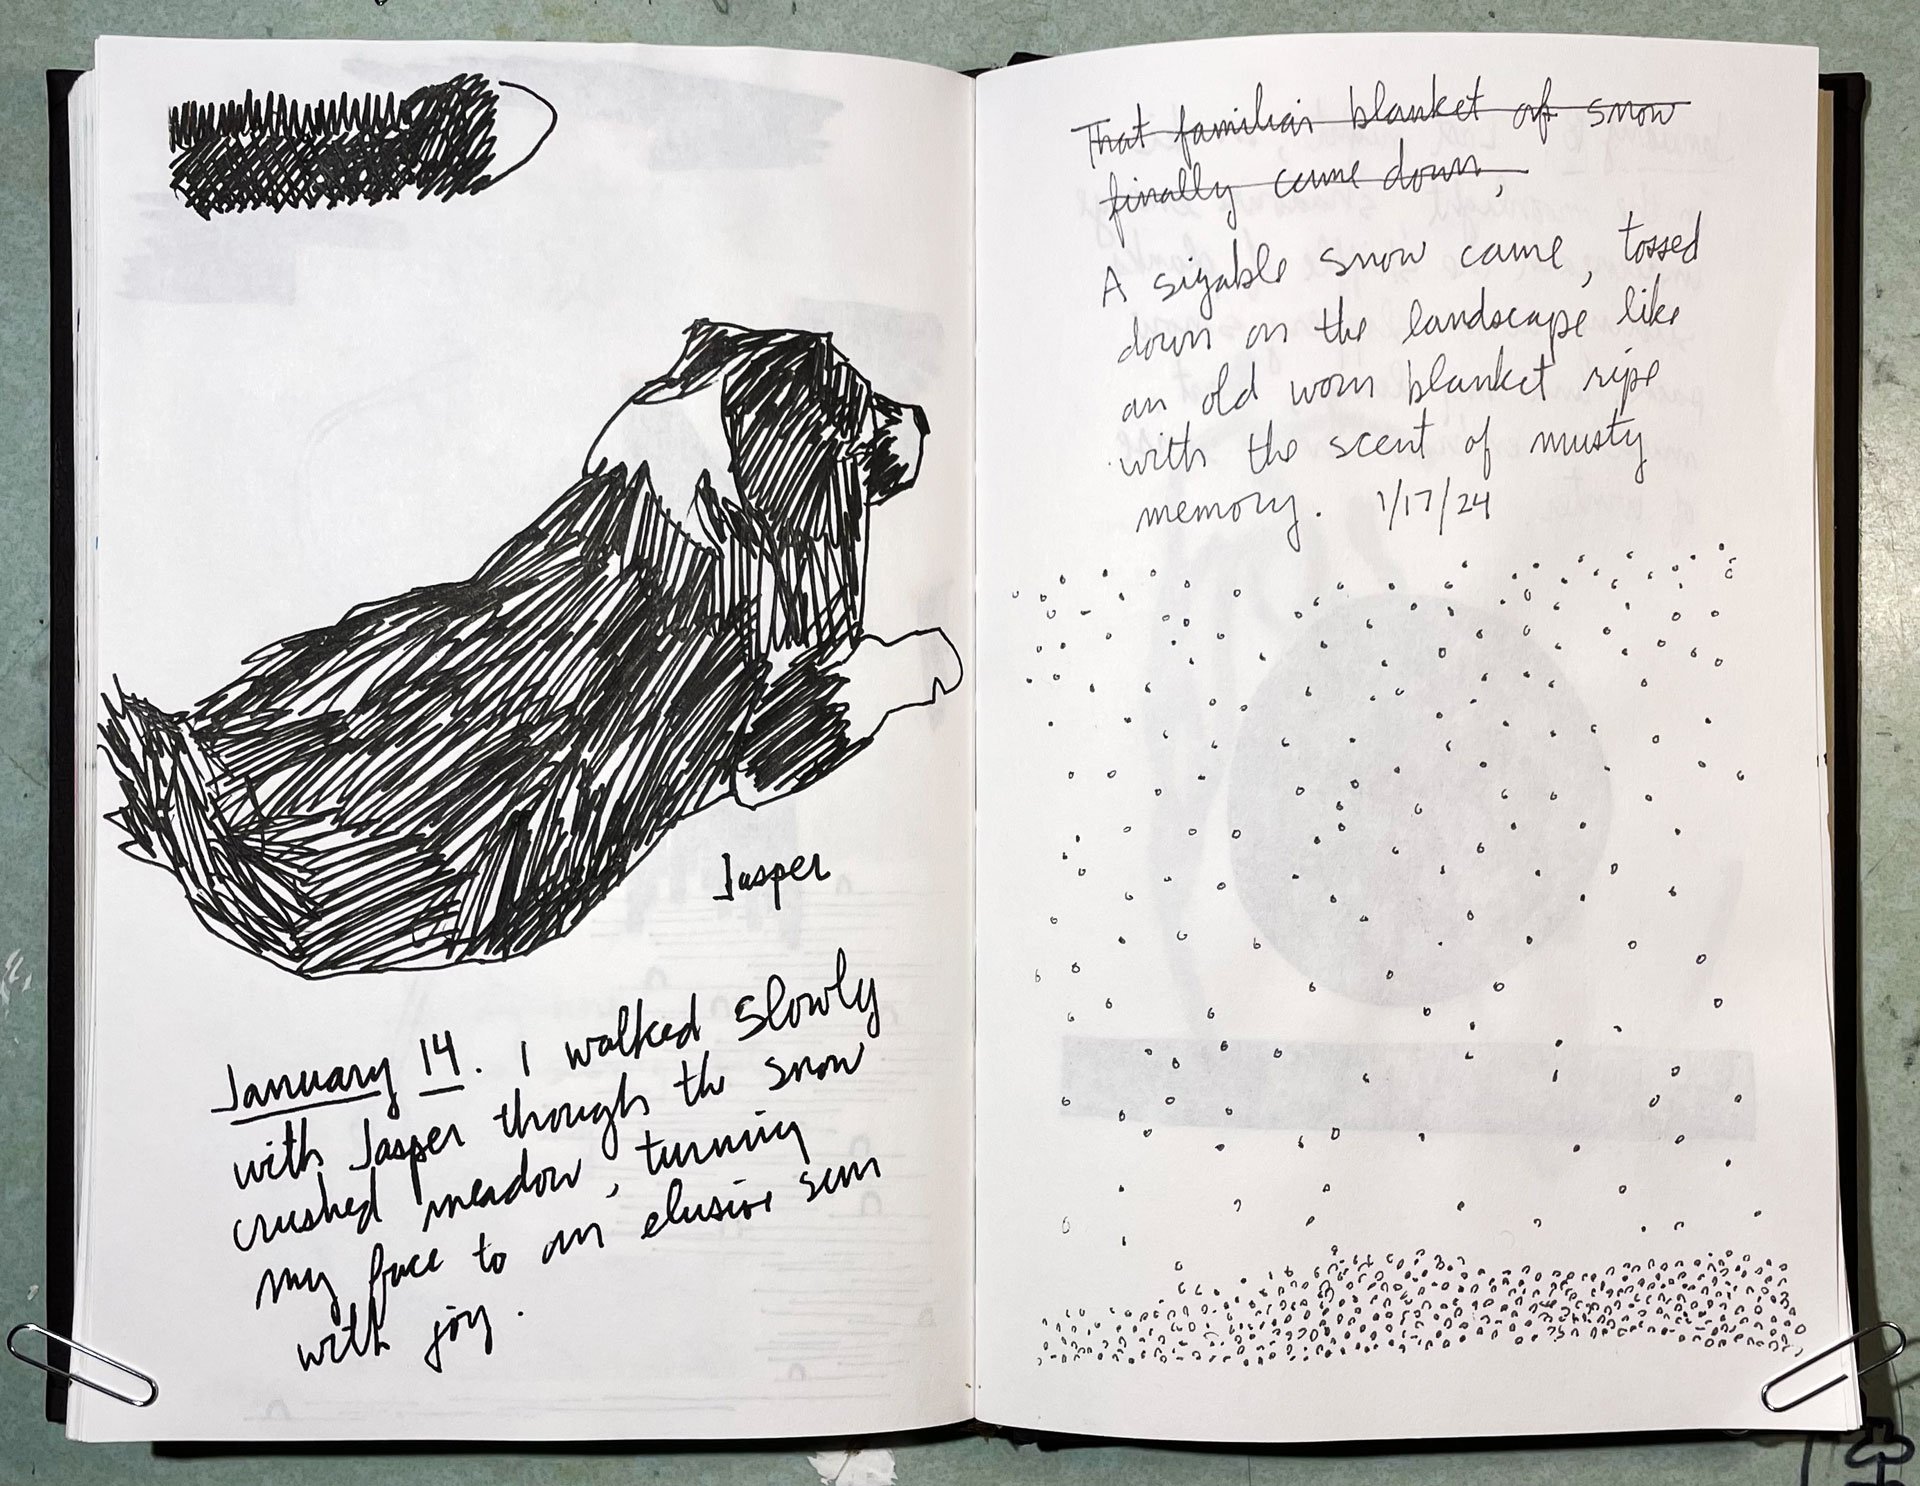 Jasper
January 14. I walked slowly
with Jasper through the snow
crushed meadow, turning
my face to an elusive sun
with joy.
That familiar blanket of snow
finally came down,
A sizable snow came, tossed
down on the landscape like
an old worn blanket ripe
with the scent of musty
memory. 1/17/24